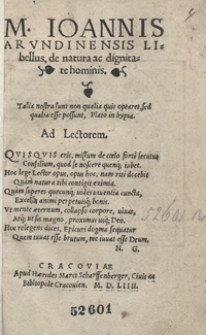 M. IOANNIS
ARVNDINENSIS LI-
bellus, de natura ac dignita-
te hominis.
Talia nostra sunt non qualia quis optaret, sed
qualia esse possunt, Plato in hippia.
Ad Lectorem.
QVISQVIS eris, missum de cœlo forti secutus
Consilium, quod se noscere quenq; iubet.
Hoc lege Lector opus, opus hoc, nam te docebit
Quàm natura tibi contigit eximia.
Quàm superes quecunq; uides cuncta,
Excelsa animi perpetuiq; bonis.
Vt mente æternum, collapso corpore, uiuas,
Atq; sis magno, proximus usq; Deo.
Hoc relegens dices, Epicuri dogma sequatur
Quem iuuat esse brutum, me iuuat esse Deum.
N. G.
CRACOVIAE
Apud Hæredes Marci Scharffenberger, Ciuis ac
Bibliopolæ Cracouien. M. D. LIIII.
52601
52601